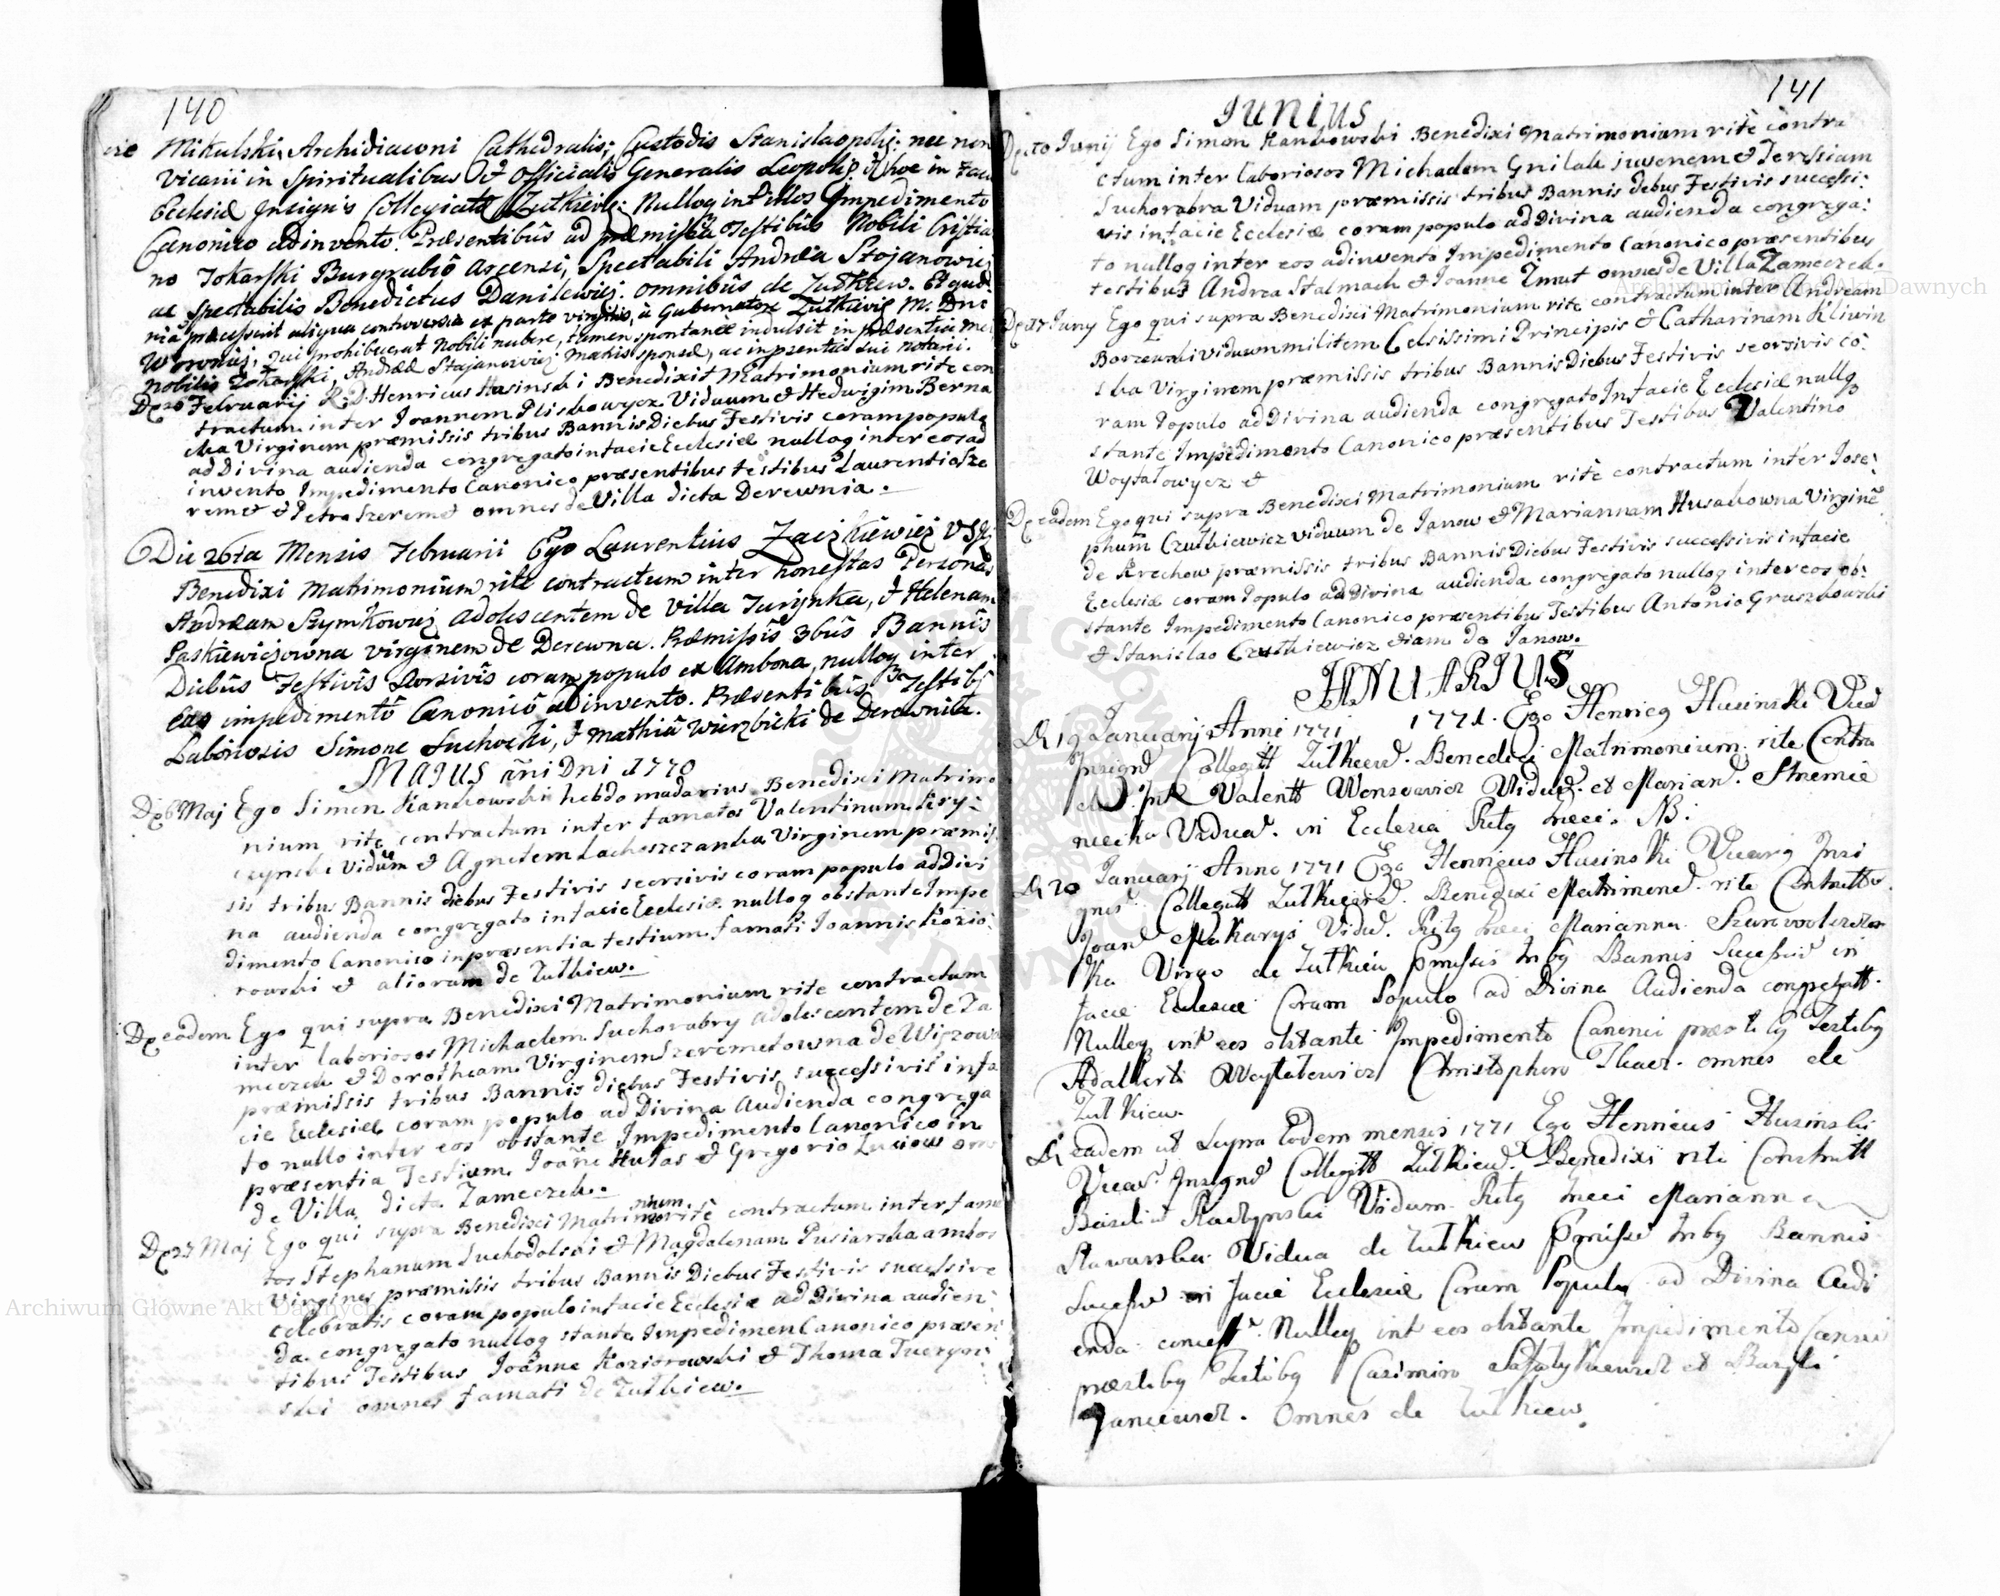 140
Mikulski, Archidiaconi Cathedralis; Custodis Stanislaopolis: nec non
Vicarii in Spiritualibus et Officialis Generalis Leopol: hoc in facie
Ecclesiæ Insignis Collegiatæ Zulkievi: Nulloq inter illos Impedimento
Canonico adinvento. Præsentibus ad præmissa Testibus Nobili Cristia
no Tokarski Burgrabio arcensi, Spectabili Andrea Stojanowicz
ac Spectabilis Benedictus Danilewicz omnibus de Zulkiew. Et quod
nia præcesserit aliqua controversia ex parte virginis, à Gubernatore Zulkievi M. Dno
Woronicz, qui prohibuerat Nobili nubere, tamen spontanee indulsit in præsentia mei
Nobilis Tokarski, Andreæ Stojanowicz, ac in præsentia sui notarii.
De 20 Februarij R:D Henricus Husinski Benedixit Matrimonium rite con
tractum inter Joannem Pliskowycz Viduum et Hedwigim Berna
cka Virginem præmissis tribus Bannis Diebus Festivis coram populo
ad Divina audienda congregato in facie Ecclesiæ nulloq inter eos ad
invento Impedimento Canonico præsentibus testibus Laurentio Sze
remet et Petro Szeremet omnes de Villa dicta Derewnia.
Die 26ta Mensis Februarii Ego Laurentius Zaczkiewicz
Benedixi Matrimonium rite contractum inter honestas Personas
Andream Szymkowicz adolescentem de Villa Turynka, et Helenam
Paskiewiczowna virginem de Derewna. Præmissis 3bus Bannis
Diebus Festivis seorsivis coram populo ex Ambona, nulloq inter
eos impedimento Canonico adinvento. Præsentibus Testibus
Laboriosis Simone Suchocki, et Mathia Wierzbicki de Derewnia.
MAJUS ani Dni 1770
De 6 Maj Ego Simon Kankowski hebdomadarius Benedixi Matrimo
nium rite contractum inter famatos Valentinum Kry:
czynski Viduum et Agnetem Lachoszczanka Virginem præmis:
sis tribus Bannis diebus Festivis seorsivis coram populo ad Divi
na audienda congregato in facie Ecclesiæ nulloq obstante Impe
dimento Canonico in præsentia testium famati Joannis Kozio:
rowski et aliorum de Zulkiew.
De eadem Ego qui supra Benedixi Matrimonium rite contractum
inter laboriosos Michaelem Suchorabry adolescentem de Za
meczek et Dorotheam Virginem Szeremetowna de Wizowa
præmissis tribus Bannis diebus Festivis successivis in fa
cie Ecclesiæ coram populo ad Divina Audienda congrega
to nullo inter eos obstante Impedimento Canonico in
præsentia Testium Joanne Hulas et Gregorio Zuciow omn
de Villa dicta Zameczek.
De 27 Maj Ego qui supra Benedixi Matrimonium rite contractum inter fama
tos Stephanum Suchodolski et Magdalenam Pusiarska ambos
Virgines præmissis tribus Bannis Diebus Festivis successive
celebratis coram populo in facie Ecclesiæ ad Divina audien:
da congregato nulloq stante Impedimen Canonico præsen
tibus Testibus Joanne Koziorowski et Thoma Tueryn:
ski omnes famati de Zulkiew.
141
IUNIUS
De 10 Junij Ego Simon Kankowski Benedixi Matrimonium ritè contra
ctum inter laboriosos Michaelem Gnilak juvenem et Teressiam
Suchorabra Viduam præmissis tribus Bannis debus Festivis successi:
vis in facie Ecclesiæ coram populo ad Divina audienda congrega:
to nulloq inter eos adinvento Impedimento Canonico præsentibus
testibus Andrea Stalmach et Joanne Zmut omnes de Villa Zameczek.
De 17 Juny Ego qui supra Benedixi Matrimonium rite contractum inter Andream
Borzecki viduum militem Celsissimi Principis et Catharinam Kliwin
ska Virginem præmissis tribus Bannis Diebus Festivis seorsivis co:
ram Populo ad Divina audienda congregato In facie Ecclesiæ nulloq
stante Impedimento Canonico præsentibus Testibus Valentino
Woytalowycz et
De eadem Ego qui supra Benedixi Matrimonium rite contractum inter Jose:
phum Czulkiewicz viduum de Janow et Mariannam Husakowna Virginê
de Krechow præmissis tribus Bannis Diebus Festivis successivis in facie
Ecclesiæ coram Populo ad Divina audienda congregato nulloq inter eos ob:
stante Impedimento Canonico præsentibus Testibus Antonio Gruszkowski
et Stanislao Czulkiewicz etiam de Janow.
JANUARIUS
1771. Ego Henricq Husinski Vica
Di 19 Januarij Anni 1771,
Insignis Collegiatt Zulkiewd. Benedixi Matrimonium rite Contra
Valentt Wonsowicz Vidud. et Mariand. Stremie
niecka Vidua. in Ecclesia Ritq Græci. NB.
Di 20 Januarij Anno 1771 Ego Henricus Husinski Vicarq Insi
gnis Collegiatt Zulkiewd. Benedixi Matrimond. rite Contractt
Joand Makarys Vidud. Ritq Græci Marianna Szarwoolszczow
ka Virgo de Zulkiew Præmissis tribq Bannis Succesivd in
facie Eclesiæ Coram Populo ad Divina Audienda congregatt.
Nulloq intr eos obstante Impedimento Canonici præstibq Testibq
Adalberti Woytalewicz Christophoro Tkacz. omnes de
Zulkiew.
Di eadem ut Supra Eodem mensis 1771 Ego Henricus Husinski
Vicard. Insignd Collegiatt Zulkiewd. Benedixi rite Contractt
Basilid Raczynski Viduum. Ritq Græci Marianna
Stawarska Vidua de Zulkiew Præmissi tribq Bannis
Sucessivd in Facie Ecclesiæ Coram Populo ad Divina Audi
enda congrtt. Nulloq intr eos obstante Impedimento Canoni
præstibq Testibq Casimiro Safatykiewicz et Bazyli
Janciewicz. Omnes de Zulkiew.
Archiwum Główne Akt Dawnych
Archiwum Główne Akt Dawnych